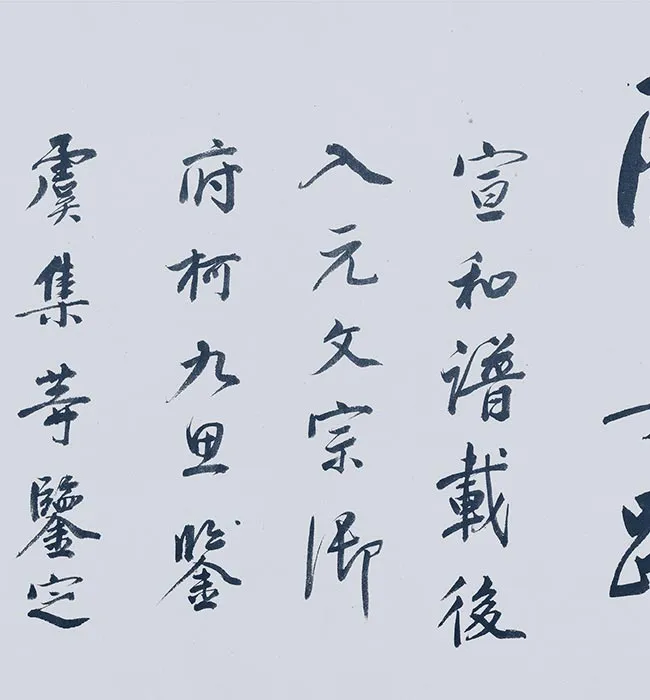 宣和譜載後
入元文宗御
府柯九思鑒
虞集等鑒定